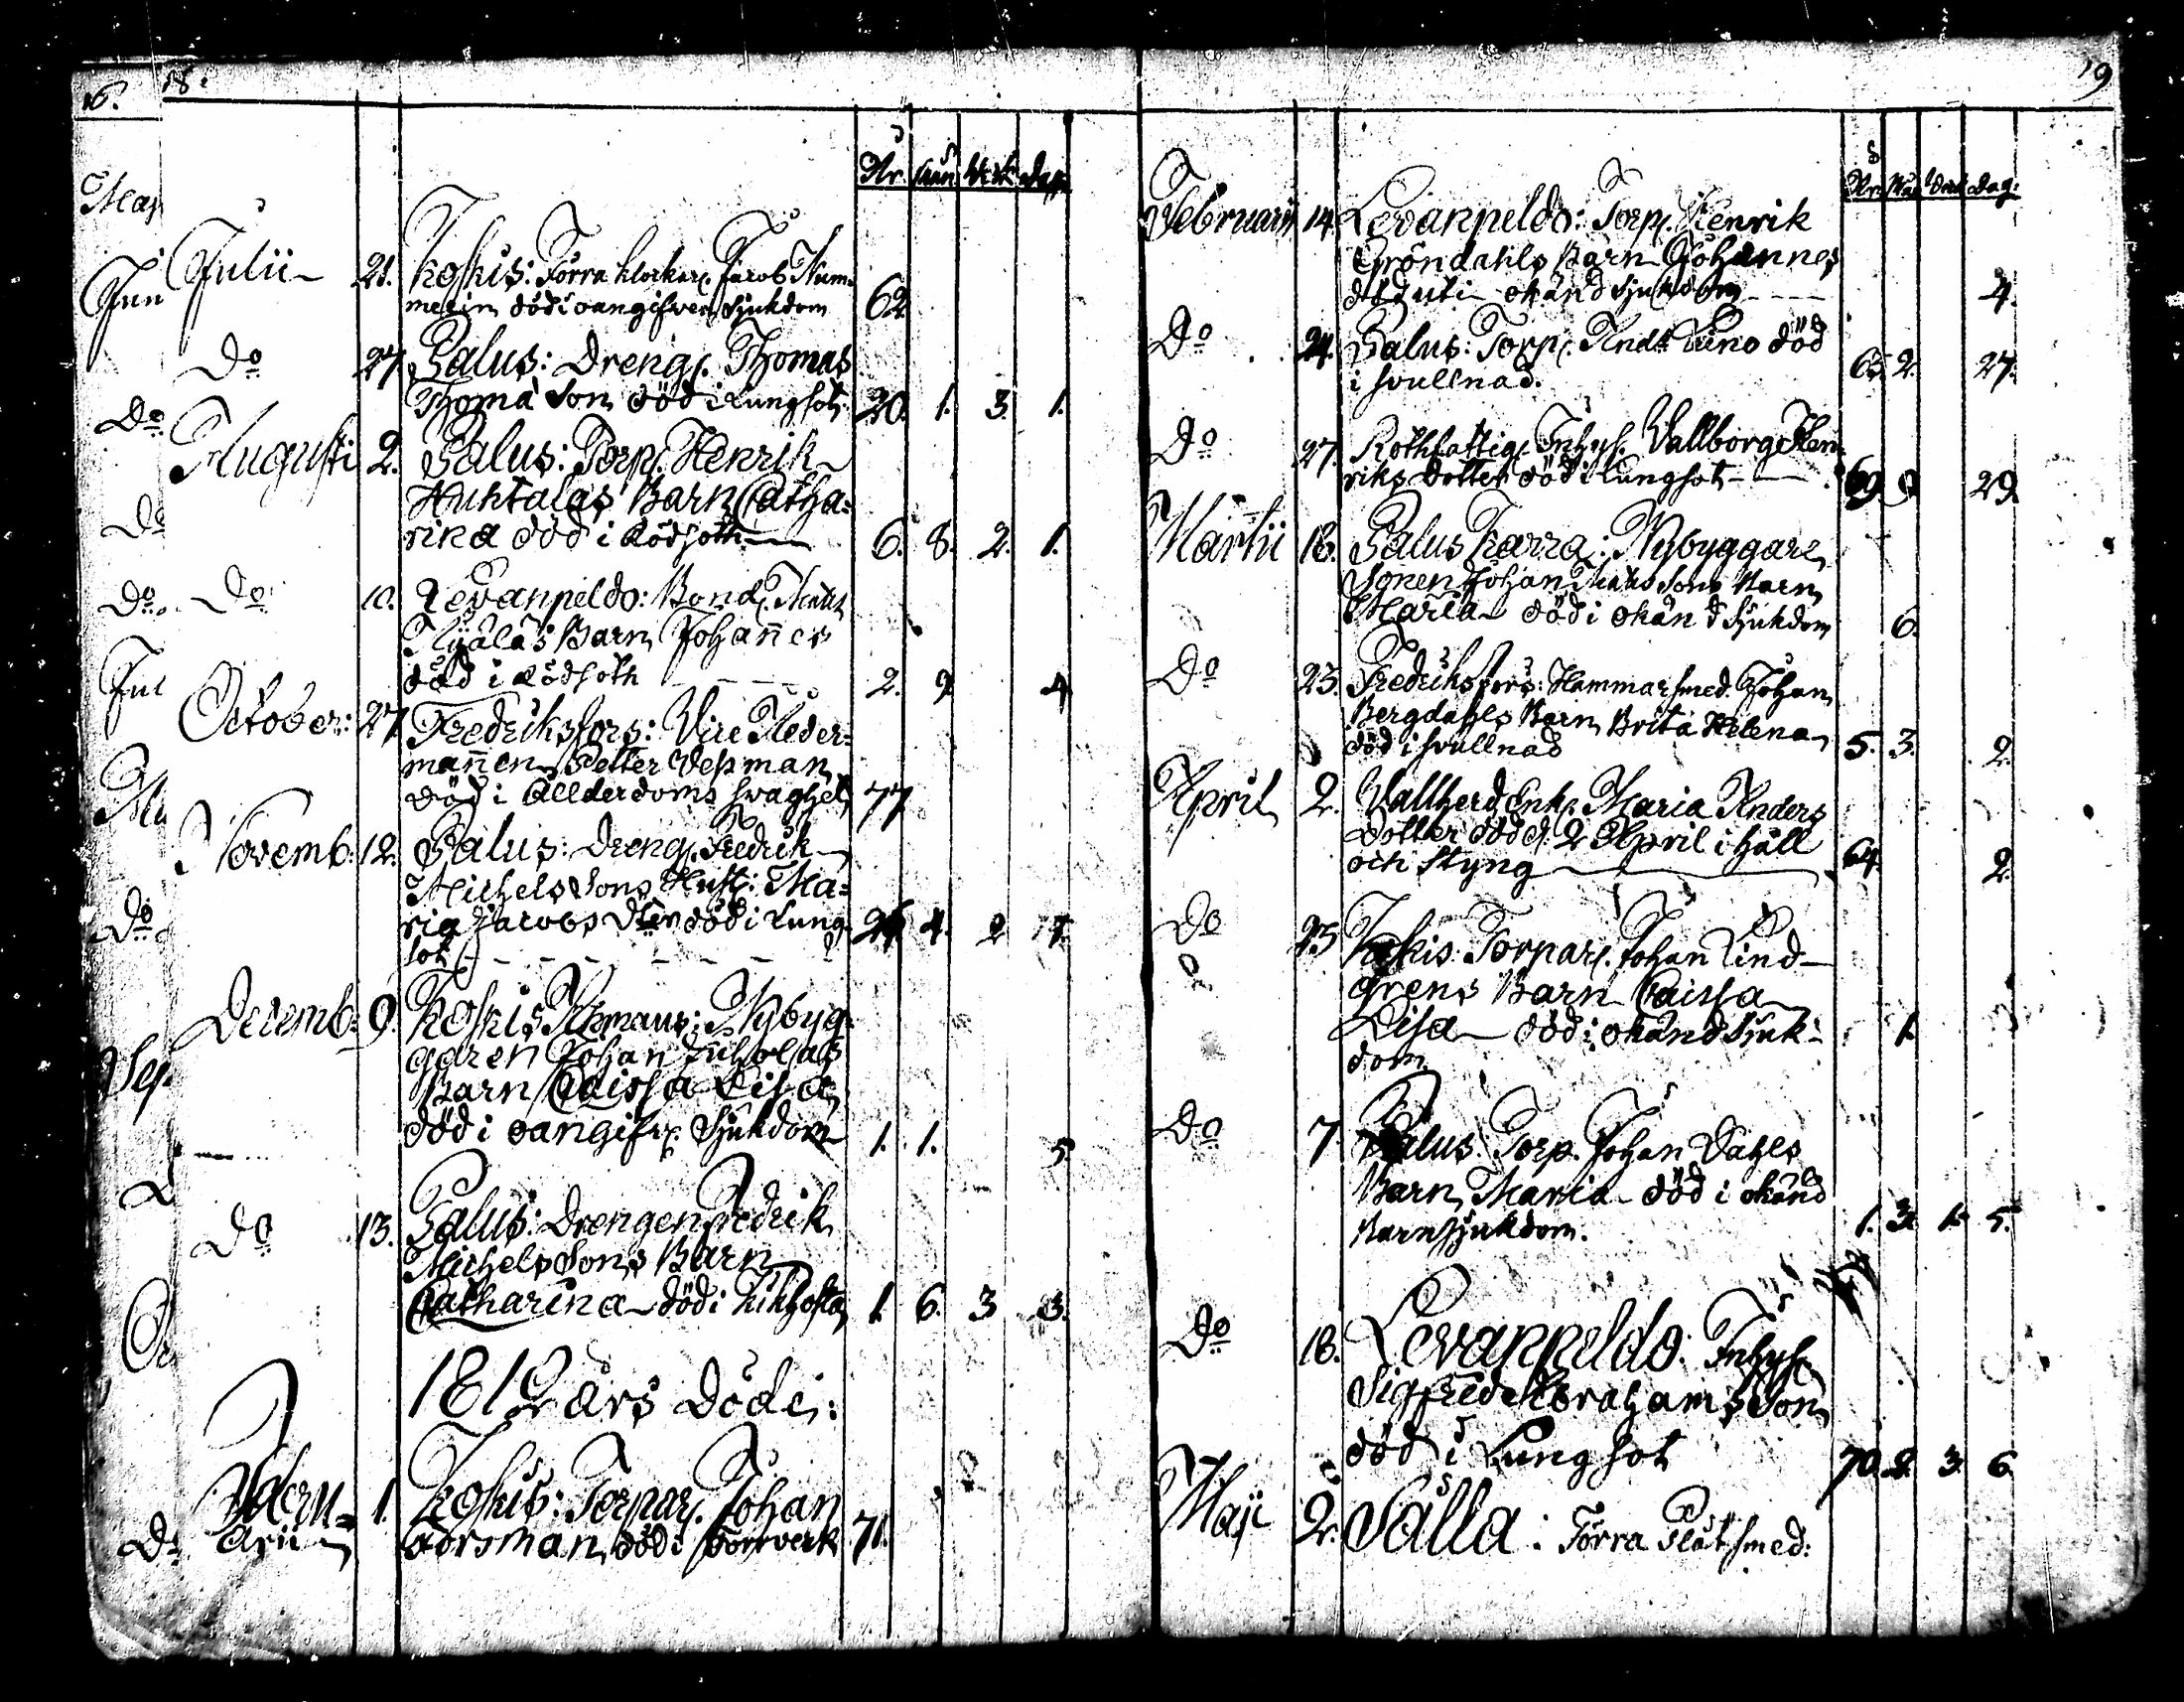 16.
18.
År. Mån. Vek. Dag.
Julii 21. Koskis: Förra klockar. Jacob Num-
melin död i oangifven Sjukdom 62
Do 27 Palus: Dreng. Thomas
Thomæ Son död i Lungsot 20. 1. 3. 1.
Augusti 2. Palus: Torp. Henrik
Huhtalas Barn Catha-
rina död i Rödsoth 6. 8. 2. 1.
Do 10. Levanpeldo: Bond. Matts
Barn Johannes
död i Rödsoth 2. 9. 4.
October: 27 Fredriksfors: Vice Åleder-
mannen Petter Vesman
död i Ållderdoms svaghet 77
Novemb: 12. Palus: Dreng. Fredrik
Michels Sons Hust: Ma-
ria Jacobs Dter död i Lung-
sot 4. 2
Decemb: 9. Koskis Nybyg-
garen Johan Juholas
Barn Caissa Lisa
död i oangifv. Sjukdom 1. 1. 5.
Do 13. Palus: Drengen Fredrik
Michels Sons Barn
Catharina död i Kikhosta 1. 6. 3 3.
1812 års Döde:
1. Koskis: Torpar. Johan
Forsman död i 71.
arii
19
År. Mån. Vek. Dag.
Februarii 14. Levanpeldo: Torp. Henrik
Gröndahls Barn Johannes
död uti okänd Sjukdom 4.
Do 24. Palus: Torp. Ands Leino död
i svullnad. 63. 2. 27.
Do 27. Rothfattig. Inhys. Vallborg Hen-
riks Dotter död i Lungsot 69. 9. 29.
Martii 18. Palus Karra: Nybyggare
Sonen Johan Matts Sons Barn
Maria död i okänd Sjukdom 6.
Do 23. Fredriksfors: Hammarsmed. Johan
Bergdahls Barn Brita Helena
död i svullnad 5. 3. 2.
April 2. Vallherd Enk. Maria Anders
Dotter död d. 2 April i håll
och styng 64. 2.
Do Koskis: Torpar. Johan Lind-
grens Barn Caissa
Lisa död i okänd Sjuk-
dom. 1.
Do 7. Palus. Torp. Johan Dahls
Barn Maria död i okänd
Barnsjukdom. 1. 3. 1. 5.
Do 18. Levanpeldo: Inhys.
Sigfred Abrahams Son
död i Lungsot 70. 2. 3. 6.
Maji 2. Sälla: Förra Plåtsmed: